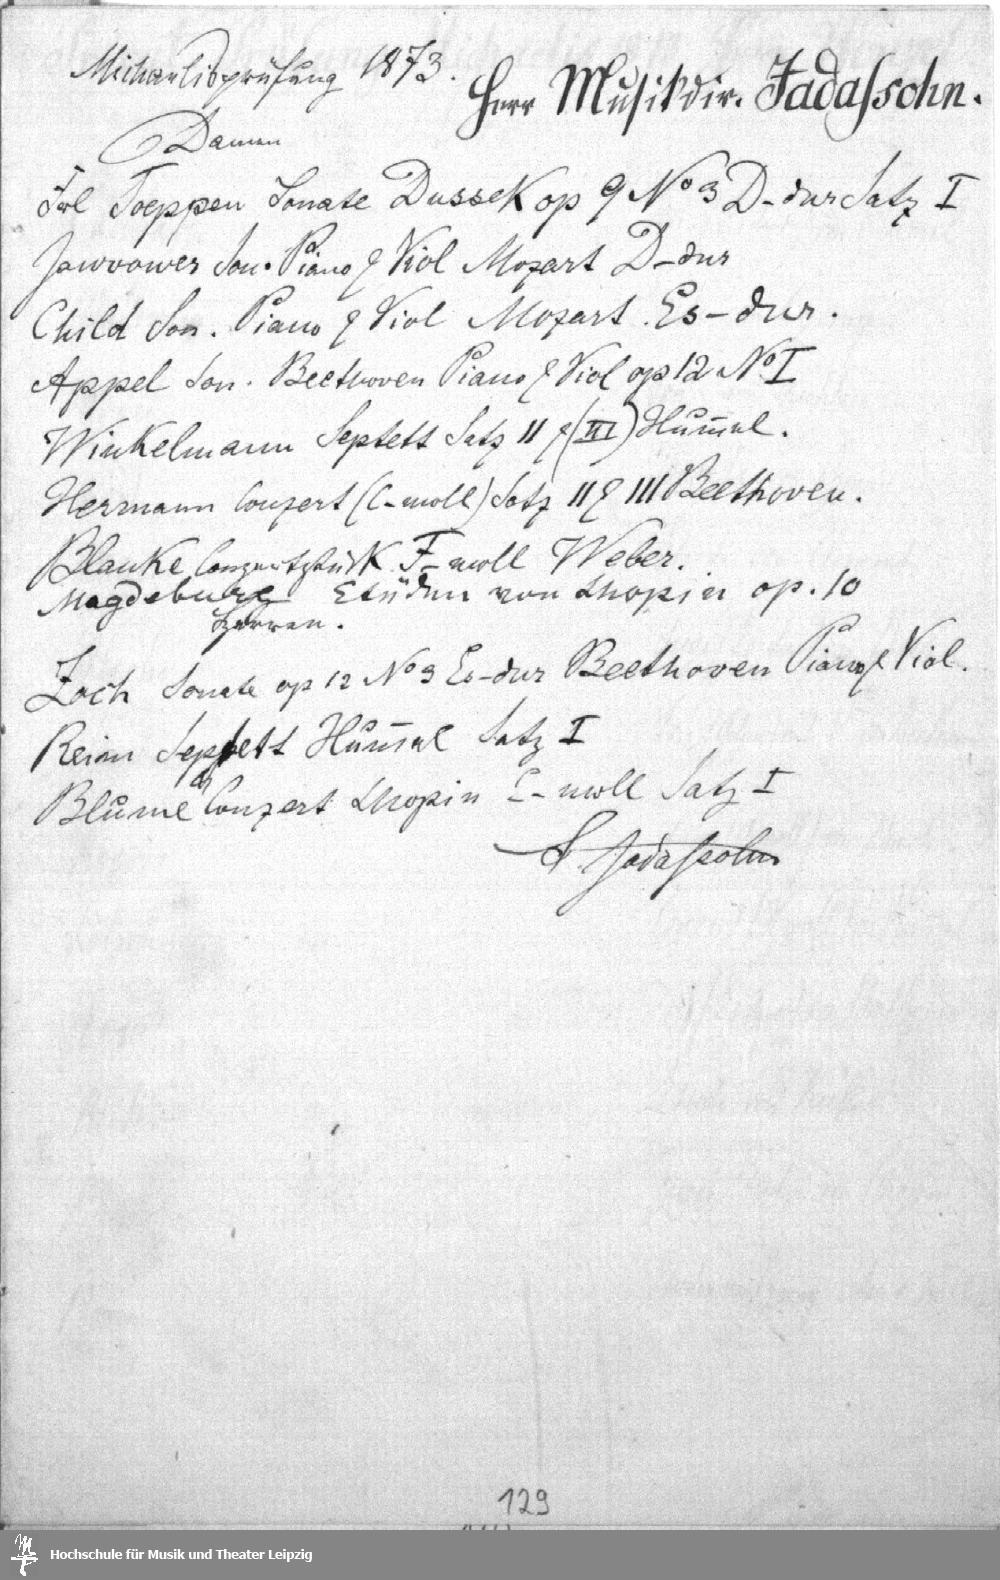 Michaelisprüfung 1873.
Herr Musikdir. Jadassohn.
Damen
Frl Toeppen Sonate Dussek op 9 No 3 D-dur Satz I
Son. Piano & Viol Mozart D-dur
Child Son. Piano & Viol Mozart Es-dur.
Appel Son. Beethoven Piano & Viol op 12 No I
Winkelmann Septett Satz II & (III) Hummel.
Herrmann Conzert (C-moll) Satz II & III Beethoven.
Blanke Conzertstück F-moll Weber.
Magdeburg Etüden von Chopin op. 10
Herren.
Zoch Sonate op 12 No 3 Es-dur Beethoven Piano & Viol.
Reim Septett Hummel Satz I
Blume Conzert Chopin E-moll Satz I
S Jadassohn
129
Hochschule für Musik und Theater Leipzig